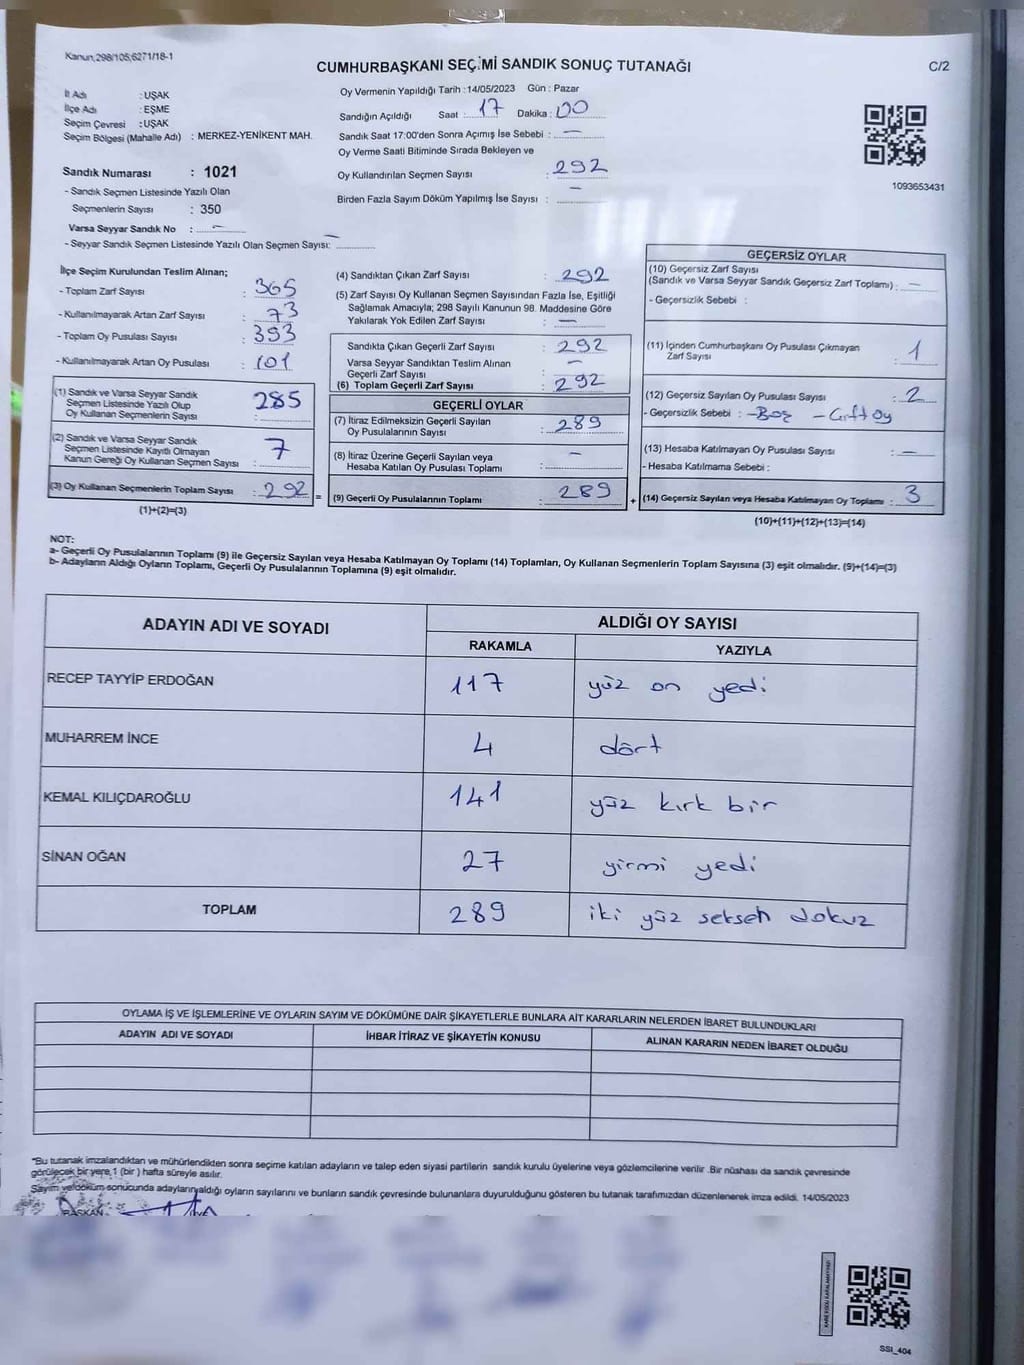 Kanun;298/105;6271/18-1
CUMHURBAŞKANI SEÇİMİ SANDIK SONUÇ TUTANAĞI
C/2
İl Adı : UŞAK
İlçe Adı : EŞME
Seçim Çevresi : UŞAK
Seçim Bölgesi (Mahalle Adı) : MERKEZ-YENİKENT MAH.
Oy Vermenin Yapıldığı Tarih : 14/05/2023 Gün : Pazar
Sandığın Açıldığı Saat : 17 Dakika : 00
Sandık Saat 17:00'den Sonra Açımış İse Sebebi : —
Oy Verme Saati Bitiminde Sırada Bekleyen ve
Oy Kullandırılan Seçmen Sayısı : 292
Birden Fazla Sayım Döküm Yapılmış İse Sayısı : —
1093653431
Sandık Numarası : 1021
- Sandık Seçmen Listesinde Yazılı Olan
Seçmenlerin Sayısı : 350
Varsa Seyyar Sandık No : —
- Seyyar Sandık Seçmen Listesinde Yazılı Olan Seçmen Sayısı: —
İlçe Seçim Kurulundan Teslim Alınan;
- Toplam Zarf Sayısı : 365
- Kullanılmayarak Artan Zarf Sayısı : 73
- Toplam Oy Pusulası Sayısı : 393
- Kullanılmayarak Artan Oy Pusulası : 101
(1) Sandık ve Varsa Seyyar Sandık
Seçmen Listesinde Yazılı Olup
Oy Kullanan Seçmenlerin Sayısı : 285
(2) Sandık ve Varsa Seyyar Sandık
Seçmen Listesinde Kayıtlı Olmayan
Kanun Gereği Oy Kullanan Seçmen Sayısı : 7
(3) Oy Kullanan Seçmenlerin Toplam Sayısı : 292 =
(1)+(2)=(3)
(4) Sandıktan Çıkan Zarf Sayısı : 292
(5) Zarf Sayısı Oy Kullanan Seçmen Sayısından Fazla İse, Eşitliği
Sağlamak Amacıyla; 298 Sayılı Kanunun 98. Maddesine Göre
Yakılarak Yok Edilen Zarf Sayısı : —
Sandıkta Çıkan Geçerli Zarf Sayısı : 292
Varsa Seyyar Sandıktan Teslim Alınan
Geçerli Zarf Sayısı : —
(6) Toplam Geçerli Zarf Sayısı : 292
GEÇERLİ OYLAR
(7) İtiraz Edilmeksizin Geçerli Sayılan
Oy Pusulalarının Sayısı : 289
(8) İtiraz Üzerine Geçerli Sayılan veya
Hesaba Katılan Oy Pusulası Toplamı : —
(9) Geçerli Oy Pusulalarının Toplamı : 289 +
GEÇERSİZ OYLAR
(10) Geçersiz Zarf Sayısı
(Sandık ve Varsa Seyyar Sandık Geçersiz Zarf Toplamı) : —
- Geçersizlik Sebebi :
(11) İçinden Cumhurbaşkanı Oy Pusulası Çıkmayan
Zarf Sayısı : 1
(12) Geçersiz Sayılan Oy Pusulası Sayısı : 2
- Geçersizlik Sebebi : -Boş -Çift Oy
(13) Hesaba Katılmayan Oy Pusulası Sayısı : —
- Hesaba Katılmama Sebebi :
(14) Geçersiz Sayılan veya Hesaba Katılmayan Oy Toplamı : 3
(10)+(11)+(12)+(13)=(14)
NOT:
a- Geçerli Oy Pusulalarının Toplamı (9) ile Geçersiz Sayılan veya Hesaba Katılmayan Oy Toplamı (14) Toplamları, Oy Kullanan Seçmenlerin Toplam Sayısına (3) eşit olmalıdır. (9)+(14)=(3)
b- Adayların Aldığı Oyların Toplamı, Geçerli Oy Pusulalarının Toplamına (9) eşit olmalıdır.
ADAYIN ADI VE SOYADI ALDIĞI OY SAYISI
RAKAMLA YAZIYLA
RECEP TAYYİP ERDOĞAN 117 yüz on yedi
MUHARREM İNCE 4 dört
KEMAL KILIÇDAROĞLU 141 yüz kırk bir
SİNAN OĞAN 27 yirmi yedi
TOPLAM 289 iki yüz seksen dokuz
OYLAMA İŞ VE İŞLEMLERİNE VE OYLARIN SAYIM VE DÖKÜMÜNE DAİR ŞİKAYETLERLE BUNLARA AİT KARARLARIN NELERDEN İBARET BULUNDUKLARI
ADAYIN ADI VE SOYADI İHBAR İTİRAZ VE ŞİKAYETİN KONUSU ALINAN KARARIN NEDEN İBARET OLDUĞU
*Bu tutanak imzalandıktan ve mühürlendikten sonra seçime katılan adayların ve talep eden siyasi partilerin sandık kurulu üyelerine veya gözlemcilerine verilir .Bir nüshası da sandık çevresinde
görülecek bir yere 1 (bir ) hafta süreyle asılır.
Sayım ve döküm sonucunda adayların aldığı oyların sayılarını ve bunların sandık çevresinde bulunanlara duyurulduğunu gösteren bu tutanak tarafımızdan düzenlenerek imza edildi. 14/05/2023
BAŞKAN
SSI_404